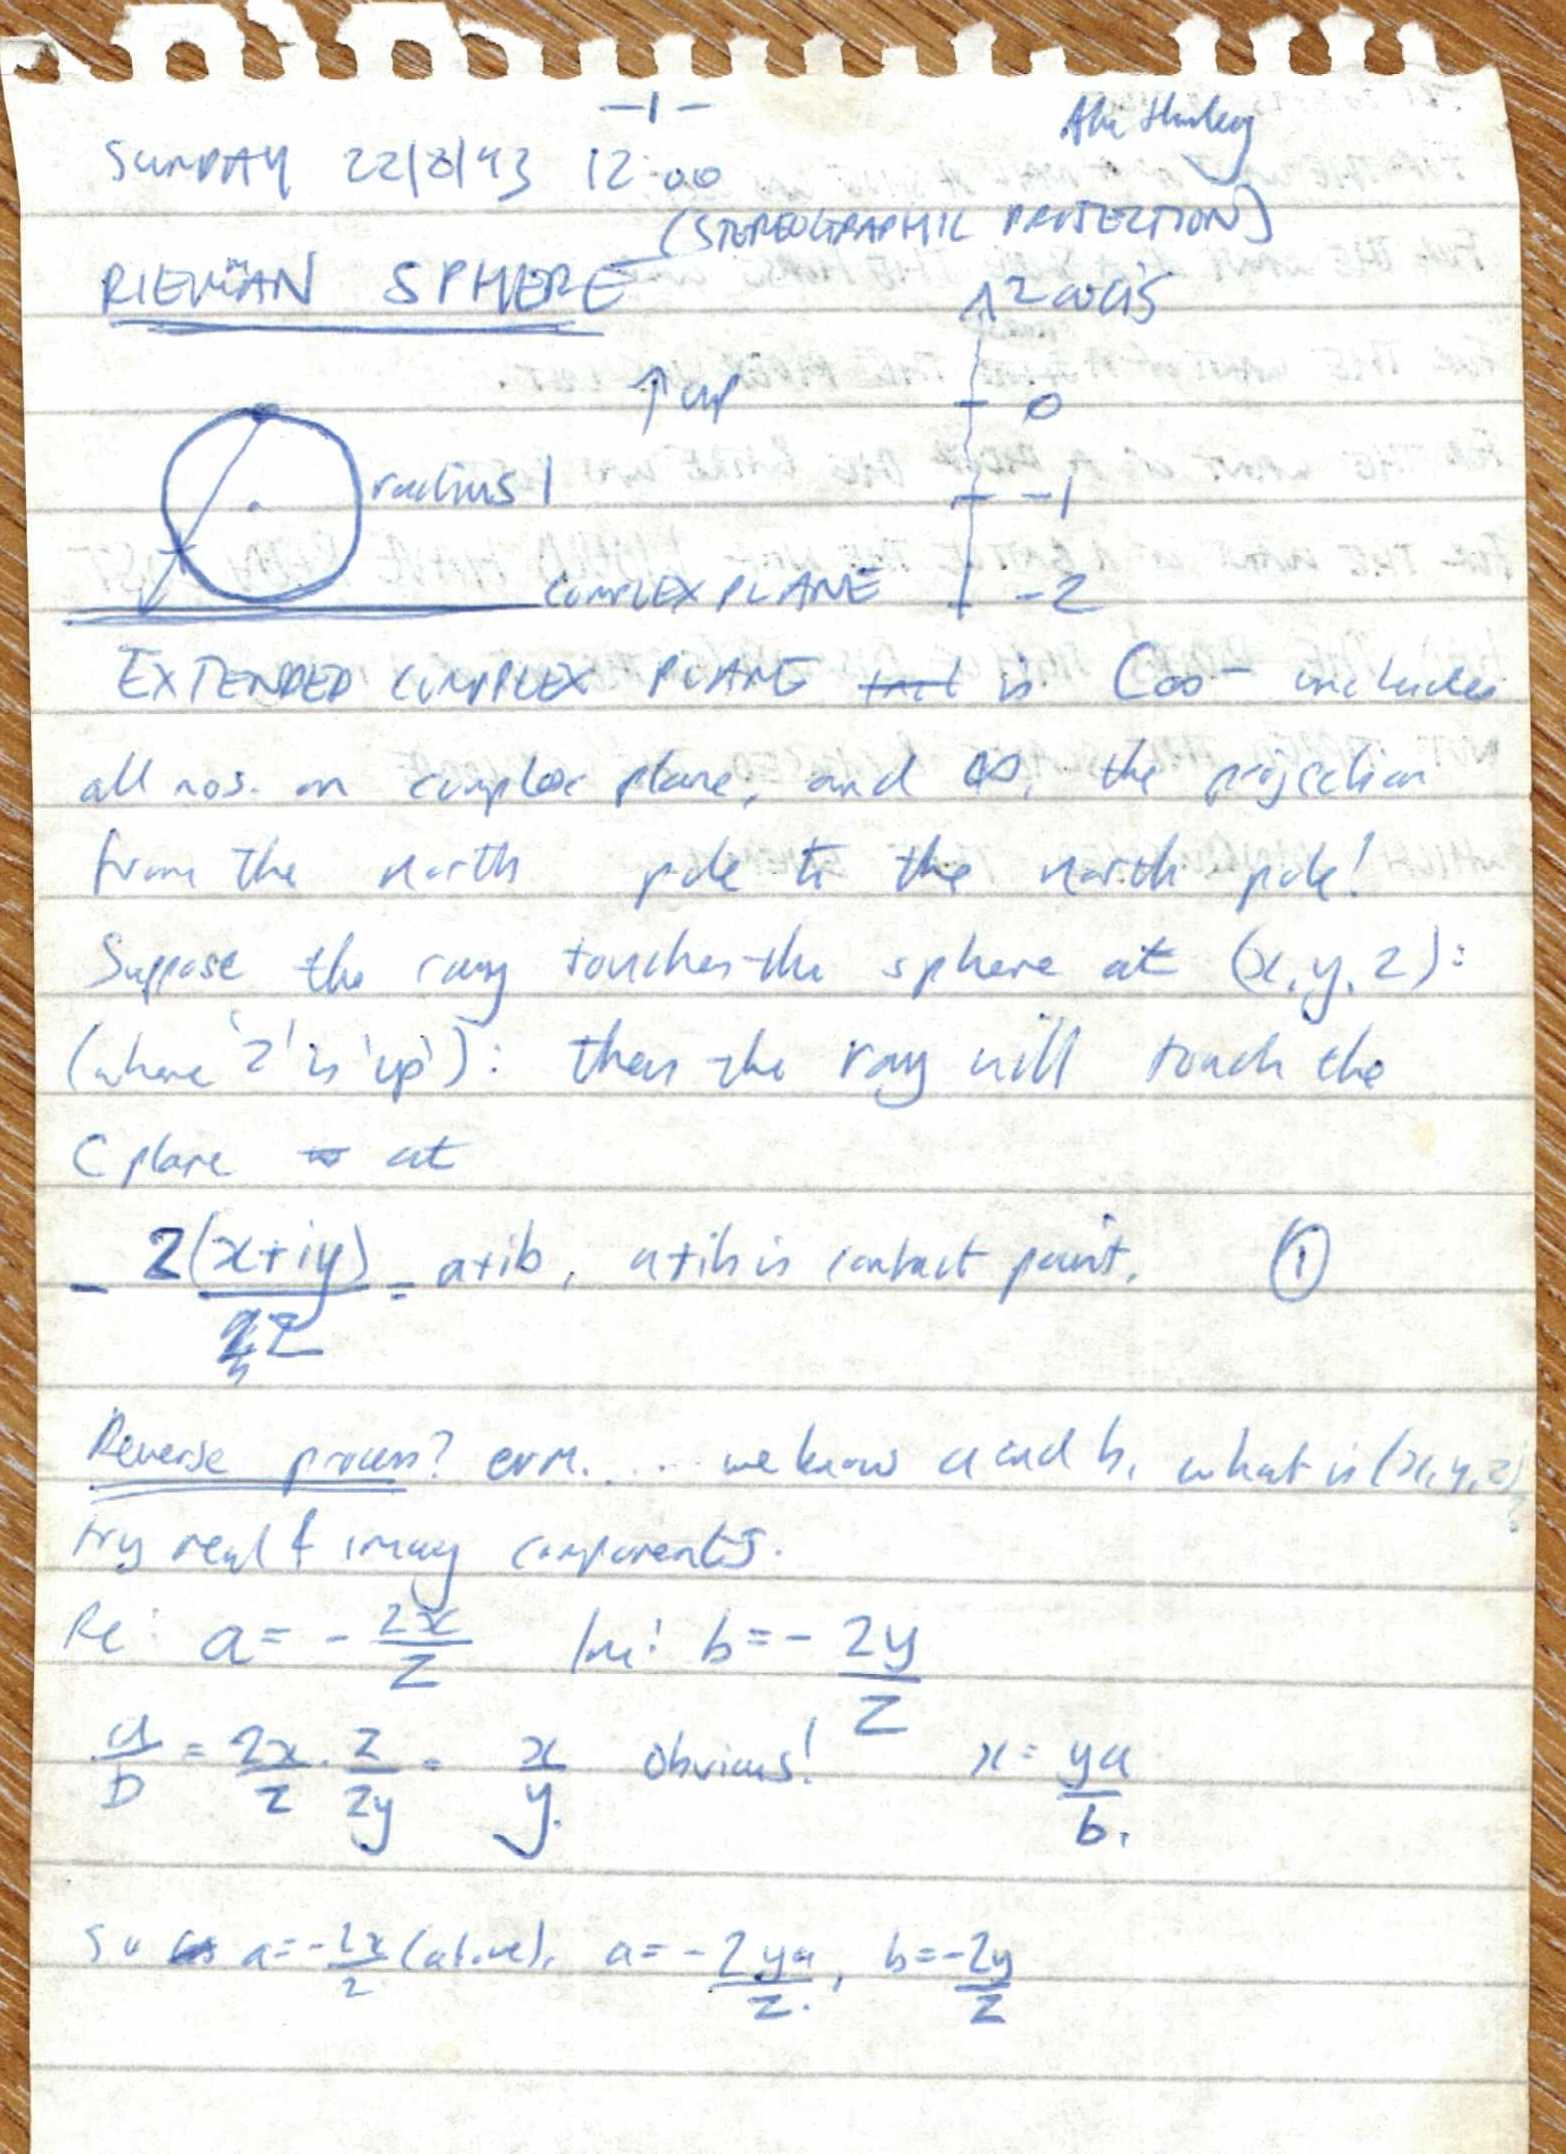 -1-
SUNDAY 22/8/93 12:00
(STEREOGRAPHIC PROJECTION)
RIEMAN SPHERE
z axis
↑ up
0
radius 1
-1
COMPLEX PLANE
-2
EXTENDED COMPLEX PLANE is C∞ - includes
all nos. on complex plane, and ∞, the projection
from the north pole to the north pole!
Suppose the ray touches the sphere at (x, y, z):
(where 'z' is 'up'): then the ray will touch the
C plane at
- 2(x+iy)/z = a+ib, a+ib is contact point. ①
Reverse process? erm..... we know a and b, what is (x,y,z)?
try real & imag components.
Re: a = - 2x/z Im: b = - 2y/z
a/b = 2x/z . z/2y = x/y. obvious! x = ya/b.
So as a = -2x/z (above), a = - 2ya/z., b = -2y/z